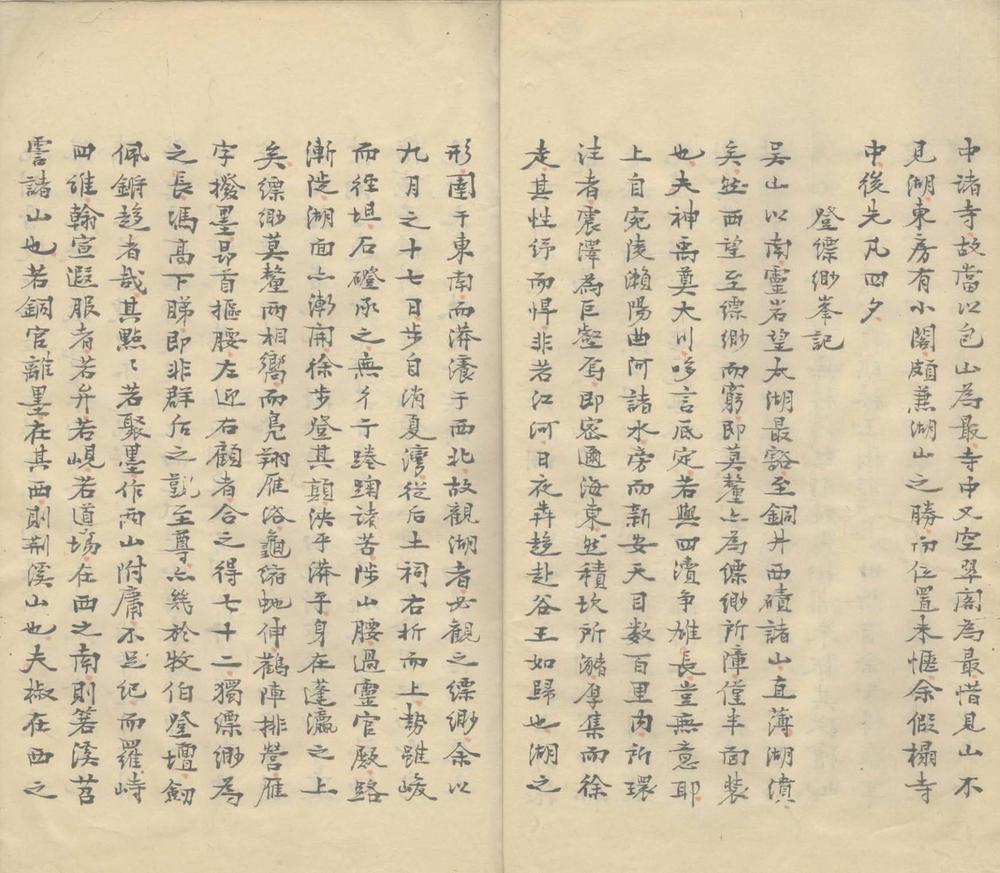 中諸寺故當以包山為最寺中又空翠閣為最惜見山不
見湖東房有小閣頗兼湖山之勝而位置未愜余假榻寺
中後先凡四夕
登縹緲峯記
吳山以南靈岩望太湖最豁至銅井西磧諸山直薄湖濆
矣然西望至縹緲而窮即莫釐亦為縹緲所障僅半面裝
也夫神禹奠大川哆言底定若與四瀆争雄長豈無意耶
上自宛陵瀨陽曲河諸水旁而新安天目数百里内所環
注者震澤為巨壑焉即密邇海東然積坎所瀦厚集而徐
走其性紓而悍非若江河日夜奔趍赴谷王如歸也湖之
形圍于東南而漭瀁于西北故觀湖者必觀之縹緲余以
九月之十七日步自消夏灣從后土祠右折而上勢雖峻
而徑坦石磴承之無彳亍踡跼諸苦陟山腰過靈官殿路
漸陡湖面亦漸開徐步登其顛泱乎漭乎身在蓬瀛之上
矣縹緲莫釐兩相嚮而鳧翔雁浴龜縮虵伸鸛陣排營雁
字撥墨昂首摳腰左迎右顧者合之得七十二獨縹緲為
之長馮高下睇即非群后之覲至尊亦幾於牧伯登壇劒
佩鏘趍者哉其點〻若聚墨作兩山附庸不足紀而羅峙
四維翰宣遐服者若弁若峴若道場在西之南則箬溪苕
霅諸山也若銅官離墨在其西則荆溪山也夫椒在西之